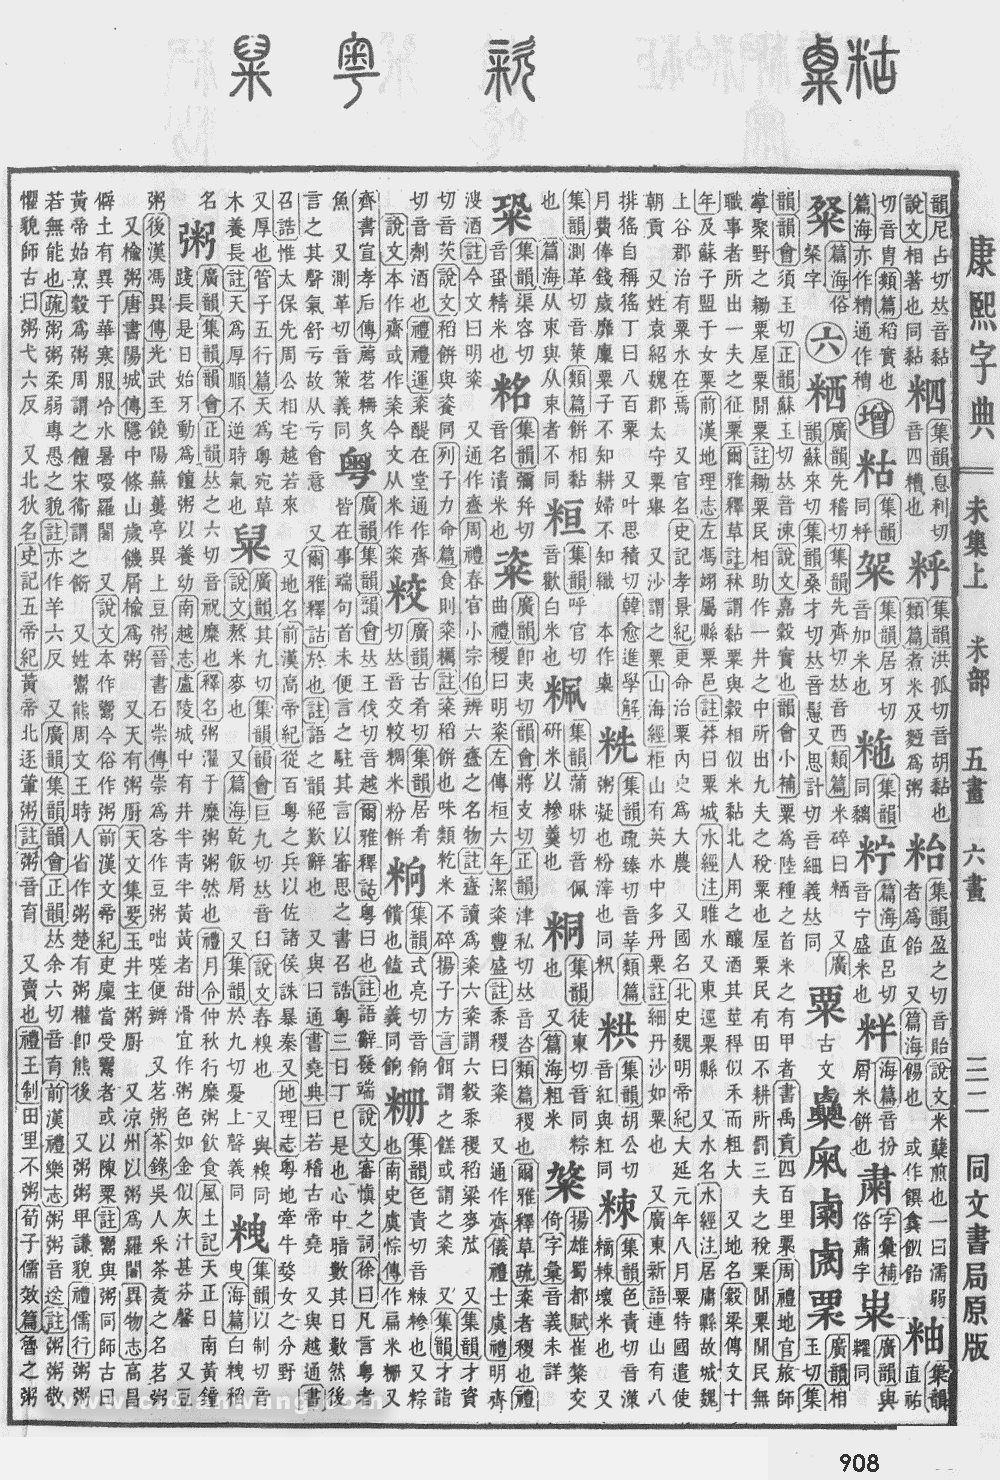 康熙字典 未集上 米部 五畫 六畫 三二 同文書局原版
韻尼占切𠀤音黏說文相著也同黏
集韻息利切音四糟也
集韻洪孤切音胡黏也類篇煮米及麪為粥
集韻盈之切音貽說文米櫱煎也一曰濡弱者為飴 又篇海餳也
粙 集韻直祐
切音胄類篇稻實也
增
集韻居牙切音加米也
篇海直呂切音宁盛米也
海篇音扮屑米餅也
粛 字彙補俗肅字
篇海俗粲字
六
粞 廣韻先稽切集韻先齊切𠀤音西類篇米碎曰粞 又廣韻蘇來切集韻桑才切𠀤音鬛又思計切音細義𠀤同
粟 古文
廣韻相玉切集
韻韻會須玉切正韻蘇玉切𠀤音涑說文嘉穀實也韻會小補粟為陸種之首米之有甲者書禹貢四百里粟周禮地官旅師
掌聚野之耡粟屋粟閒粟註耡粟民相助作一井之中所出九夫之稅粟也屋粟民有田不耕所罰三夫之稅粟閒粟閒民無
職事者所出一夫之征粟爾雅釋草註秫謂黏粟粟與穀相似米黏北人用之釀酒其莖稈似禾而粗大 又地名穀梁傳文十
年及蘇子盟于女粟前漢地理志左馮翊屬縣粟邑註莽曰粟城水經注雎水又東逕粟縣 又水名水經注居庸縣故城魏
上谷郡治有粟水在焉 又官名史記孝景紀更命治粟內史為大農 又國名北史魏明帝紀大延元年八月粟特國遣使
朝貢 又姓袁紹魏郡太守粟舉 又沙謂之粟山海經柜山有英水中多丹粟註細丹沙如粟也 又廣東新語連山有八
排徭自稱徭丁曰八百粟 又叶思積切韓愈進學解
月費俸錢歲靡廩粟子不知耕婦不知織 本作𥻆
粥凝也粉滓也
集韻疏臻切音莘
粠 集韻胡公切音紅與紅同
集韻測革切音策類篇餅相黏也 篇海从束與从朿者不同
集韻呼官切音歡白米也
集韻蒲昧切音佩硏米以糝羹也
粡 集韻徒東切音同粽也 又篇海粗米
集韻渠容切音蛩精米也
𥹯
集韻彌幷切音名漬米也
粢 廣韻卽夷切韻會將支切正韻津私切𠀤音咨類篇稷也爾雅釋草疏粢者稷也禮
曲禮稷曰明粢左傳桓六年潔粢豐盛註黍稷曰粢 又通作齊儀禮士虞禮明齊
溲酒註今文曰明粢 又通作齍周禮春官小宗伯辨六齍之名物註齍讀為粢六粢謂六穀黍稷稻粱麥苽 又集韻才資
切音茨說文稻餅與餈同列子力命篇食則粢糲註粢稻餅也味類籺米不碎揚子方言餌謂之餻或謂之粢 又集韻才詣
切音劑酒也禮禮運粢醍在堂通作齊
說文本作齋或作𥝩今文从米作粢
廣韻古肴切集韻居肴切𠀤音交較䊦米粉餅
集韻式亮切音餉饋也饁也義同餉
粣 集韻色責切音
齊書宣孝后傳薦茗粣炙
魚 又測革切音策義同
粤 廣韻集韻韻會𠀤王伐切音越爾雅釋詁粤曰也註語辭發端說文審愼之詞徐曰凡言粤者
皆在事端句首未便言之駐其言以審思之書召誥粤三日丁巳是也心中暗數其日數然後
言之其聲氣舒亏故从亏會意 又爾雅釋詁於也註語之韻絕歎辭也 又與曰通書堯典曰若稽古帝堯 又與越通書
召誥惟太保先周公相宅越若來 又地名前漢高帝紀從百粤之兵以佐諸侯誅暴秦又地理志粤地牽牛婺女之分野
又厚也管子五行篇天為粤宛草木養長註天為厚順不逆時氣也
廣韻其九切集韻韻會巨九切𠀤音臼說文舂糗也
說文熬米麥也 又篇海乾飯屑 又集韻於九切憂上聲義同
集韻以制切音曳海篇白粇稻名
粥 廣韻集韻韻會正韻𠀤之六切音祝糜也釋名粥濯于糜粥粥然也禮月令仲秋行糜粥飲食風土記天正日南黃鐘
踐長是日始牙動為饘粥以養幼南越志盧陵城中有井半靑半黃黃者甜滑宜作粥色如金似灰汁甚芬馨 又豆
粥後漢馮異傳光武至饒陽蕪蔞亭異上豆粥晉書石崇傳崇為客作豆粥咄嗟便辦 又茗粥茶錄吳人采茶煑之名茗粥
又楡粥唐書陽城傳隱中條山歲饑屑楡為粥 又天有粥厨天文集要玉井主粥厨 又凉州以粥為羅闍異物志高昌
僻土有異于華寒服冷水暑啜羅闍 又說文本作鬻今俗作粥前漢文帝紀吏廩當受鬻者或以陳粟註鬻與粥同師古曰
黃帝始烹穀為粥周宋衞謂之餰 又姓鬻熊周文王時人省作粥楚有粥權卽熊後 又粥粥𤰞謙貌禮儒行粥粥
若無能也疏粥粥柔弱專愚之貌註亦作羊六反 又廣韻集韻韻會正韻𠀤余六切音育前漢禮樂志粥粥音送註粥粥敬
懼貌師古曰粥弋六反 又北狄名史記五帝紀黃帝北逐葷粥註粥音育 又賣也禮王制田里不粥荀子儒效篇魯之粥
908